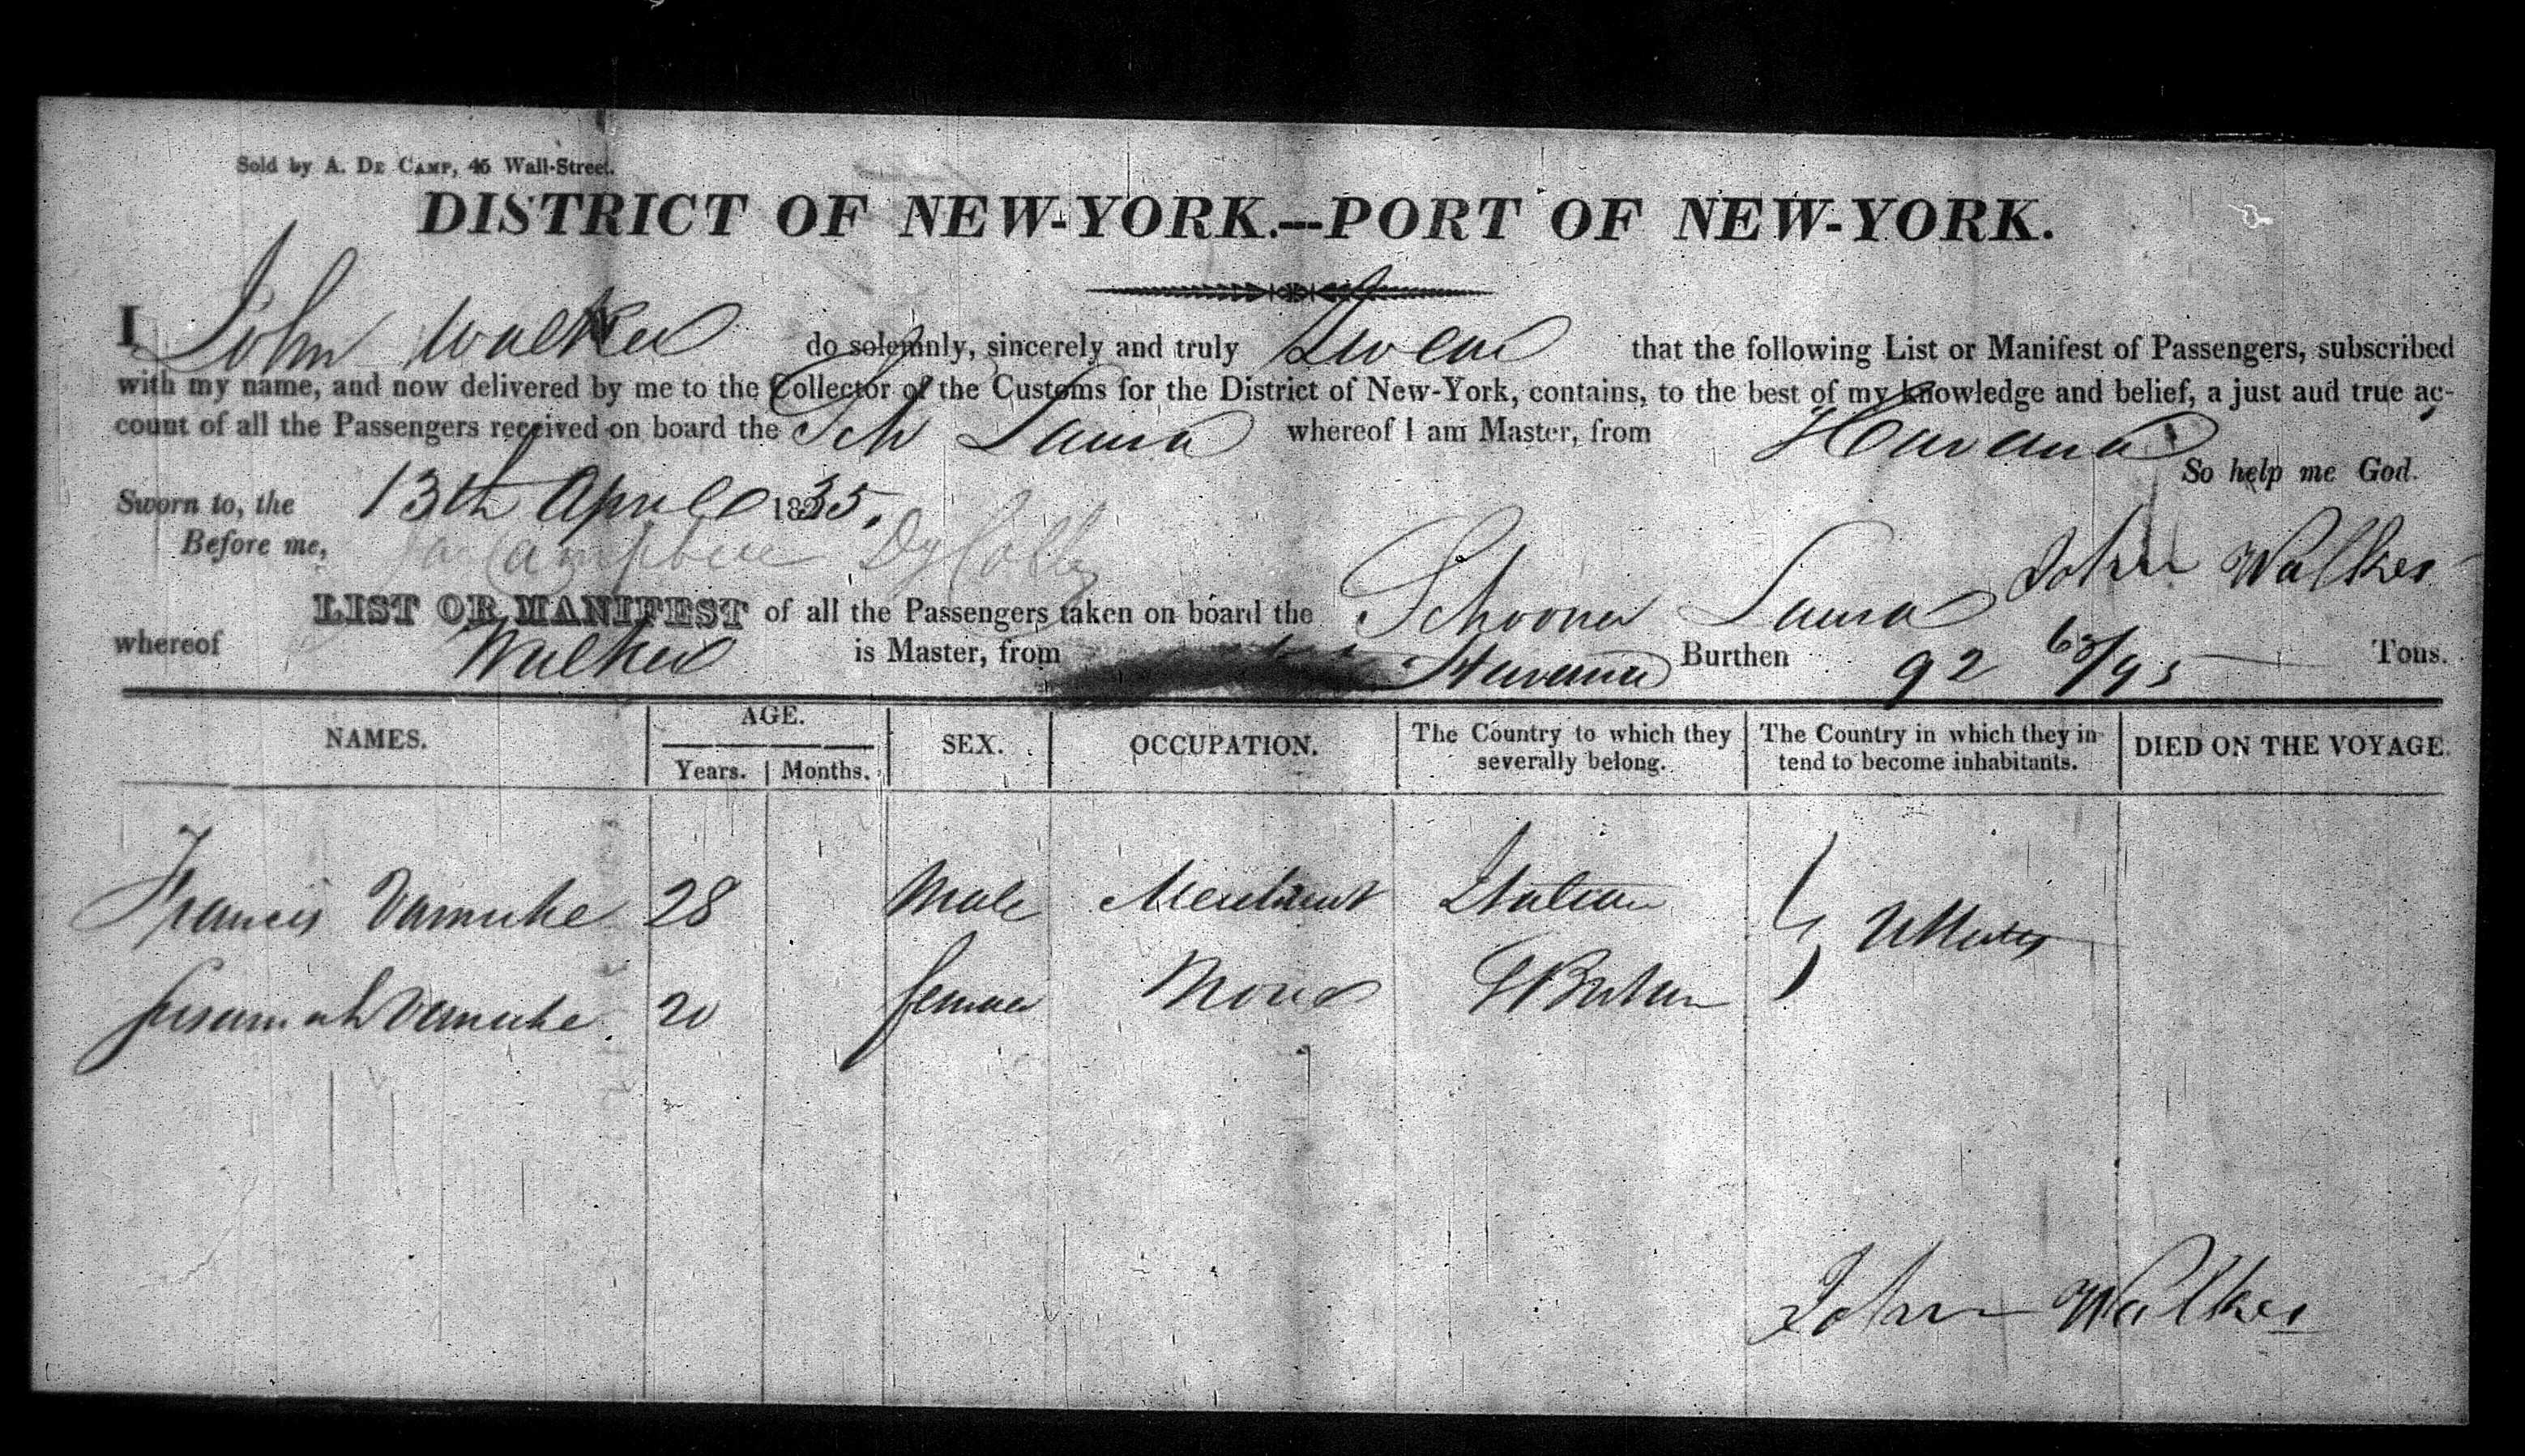 Sold by A. De Camp, 45 Wall-Street.
DISTRICT OF NEW-YORK.—PORT OF NEW-YORK.
I John Walker do solemnly, sincerely and truly Swear that the following List or Manifest of Passengers, subscribed
with my name, and now delivered by me to the Collector of the Customs for the District of New-York, contains, to the best of my knowledge and belief, a just and true ac-
count of all the Passengers received on board the Sch Laura whereof I am Master, from Havana
So help me God.
Sworn to, the 13th April 1835.
Before me, Campbell Dy Collr
John Walker
LIST OR MANIFEST of all the Passengers taken on board the Schooner Laura
whereof Walker is Master, from Havana Burthen 92 63/95 Tons.
NAMES. AGE. Years. Months. SEX. OCCUPATION. The Country to which they severally belong. The Country in which they intend to become inhabitants. DIED ON THE VOYAGE.
Francis 28 Male Merchant Italian
U States
Susannah 20 female None G Britain
John Walker